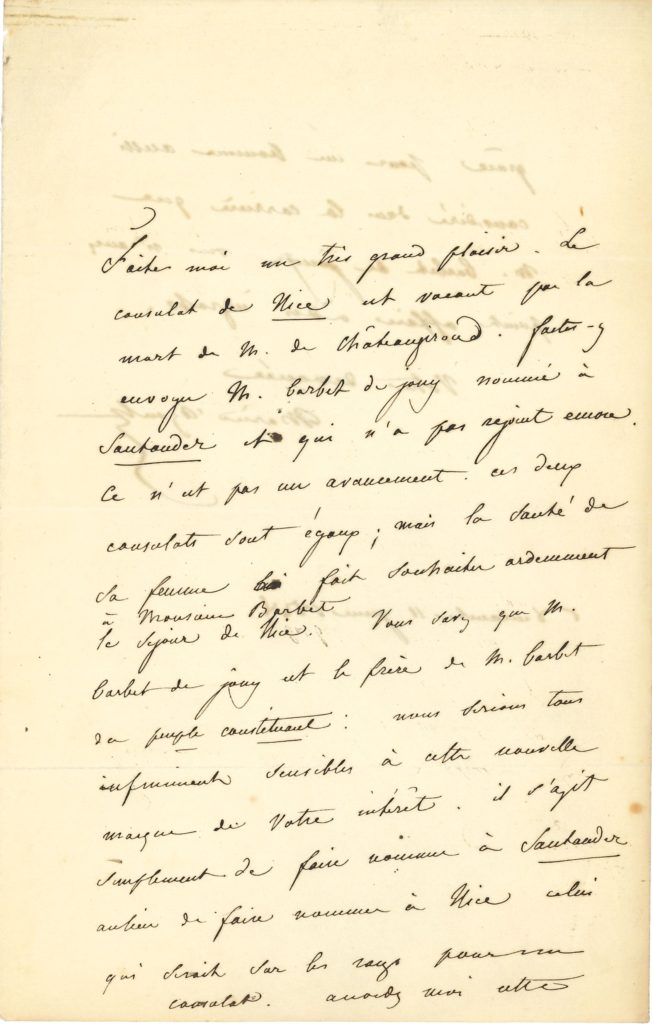 Faites moi un très grand plaisir. Le
consulat de Nice est vacant par la
mort de M. de Châteaugiroud. faites-y
envoyer M. barbet de jouy nommé à
Santander et qui n'a pas rejoint encore.
Ce n'est pas un avancement. ces deux
consulats sont égaux; mais la santé de
sa femme fait souhaiter ardemment
à Monsieur Barbet
le séjour de Nice. Vous savez que M.
barbet de jouy est le frère de M. barbet
du peuple constituant: nous serions tous
infiniment sensibles à cette nouvelle
marque de votre intérêt. il s'agit
simplement de faire nommer à Santander
aulieu de faire nommer à Nice celui
qui serait sur les rangs pour un
consulat. accordez moi cette